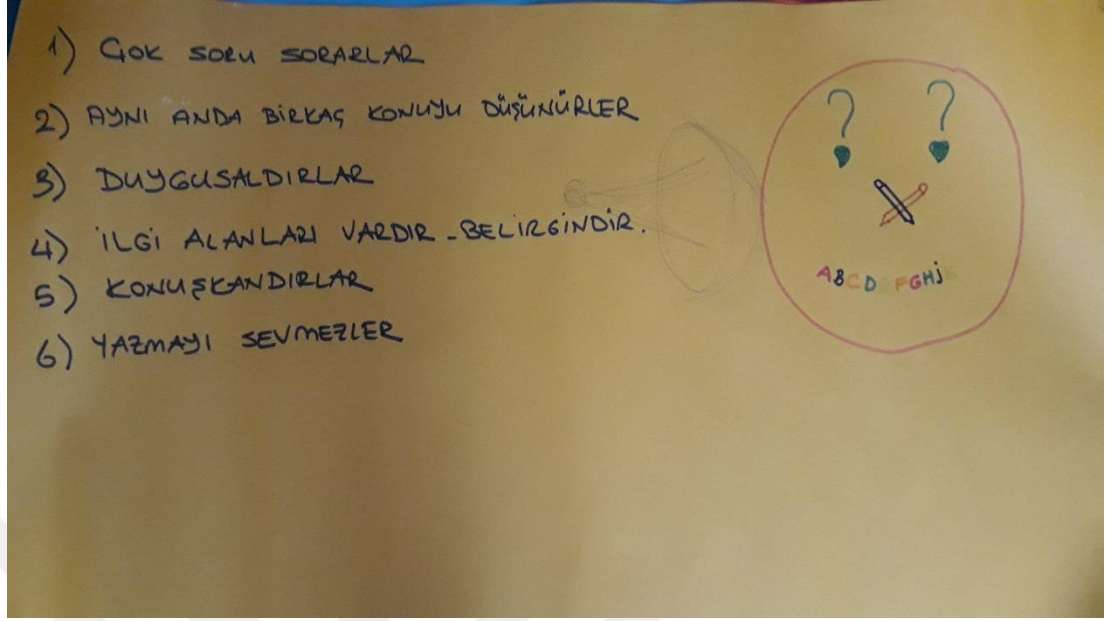 1) ÇOK SORU SORARLAR
2) AYNI ANDA BİRKAÇ KONUYU DÜŞÜNÜRLER
3) DUYGUSALDIRLAR
4) İLGİ ALANLARI VARDIR - BELİRGİNDİR.
5) KONUŞKANDIRLAR
6) YAZMAYI SEVMEZLER
? ?
ABCDEFGHJK